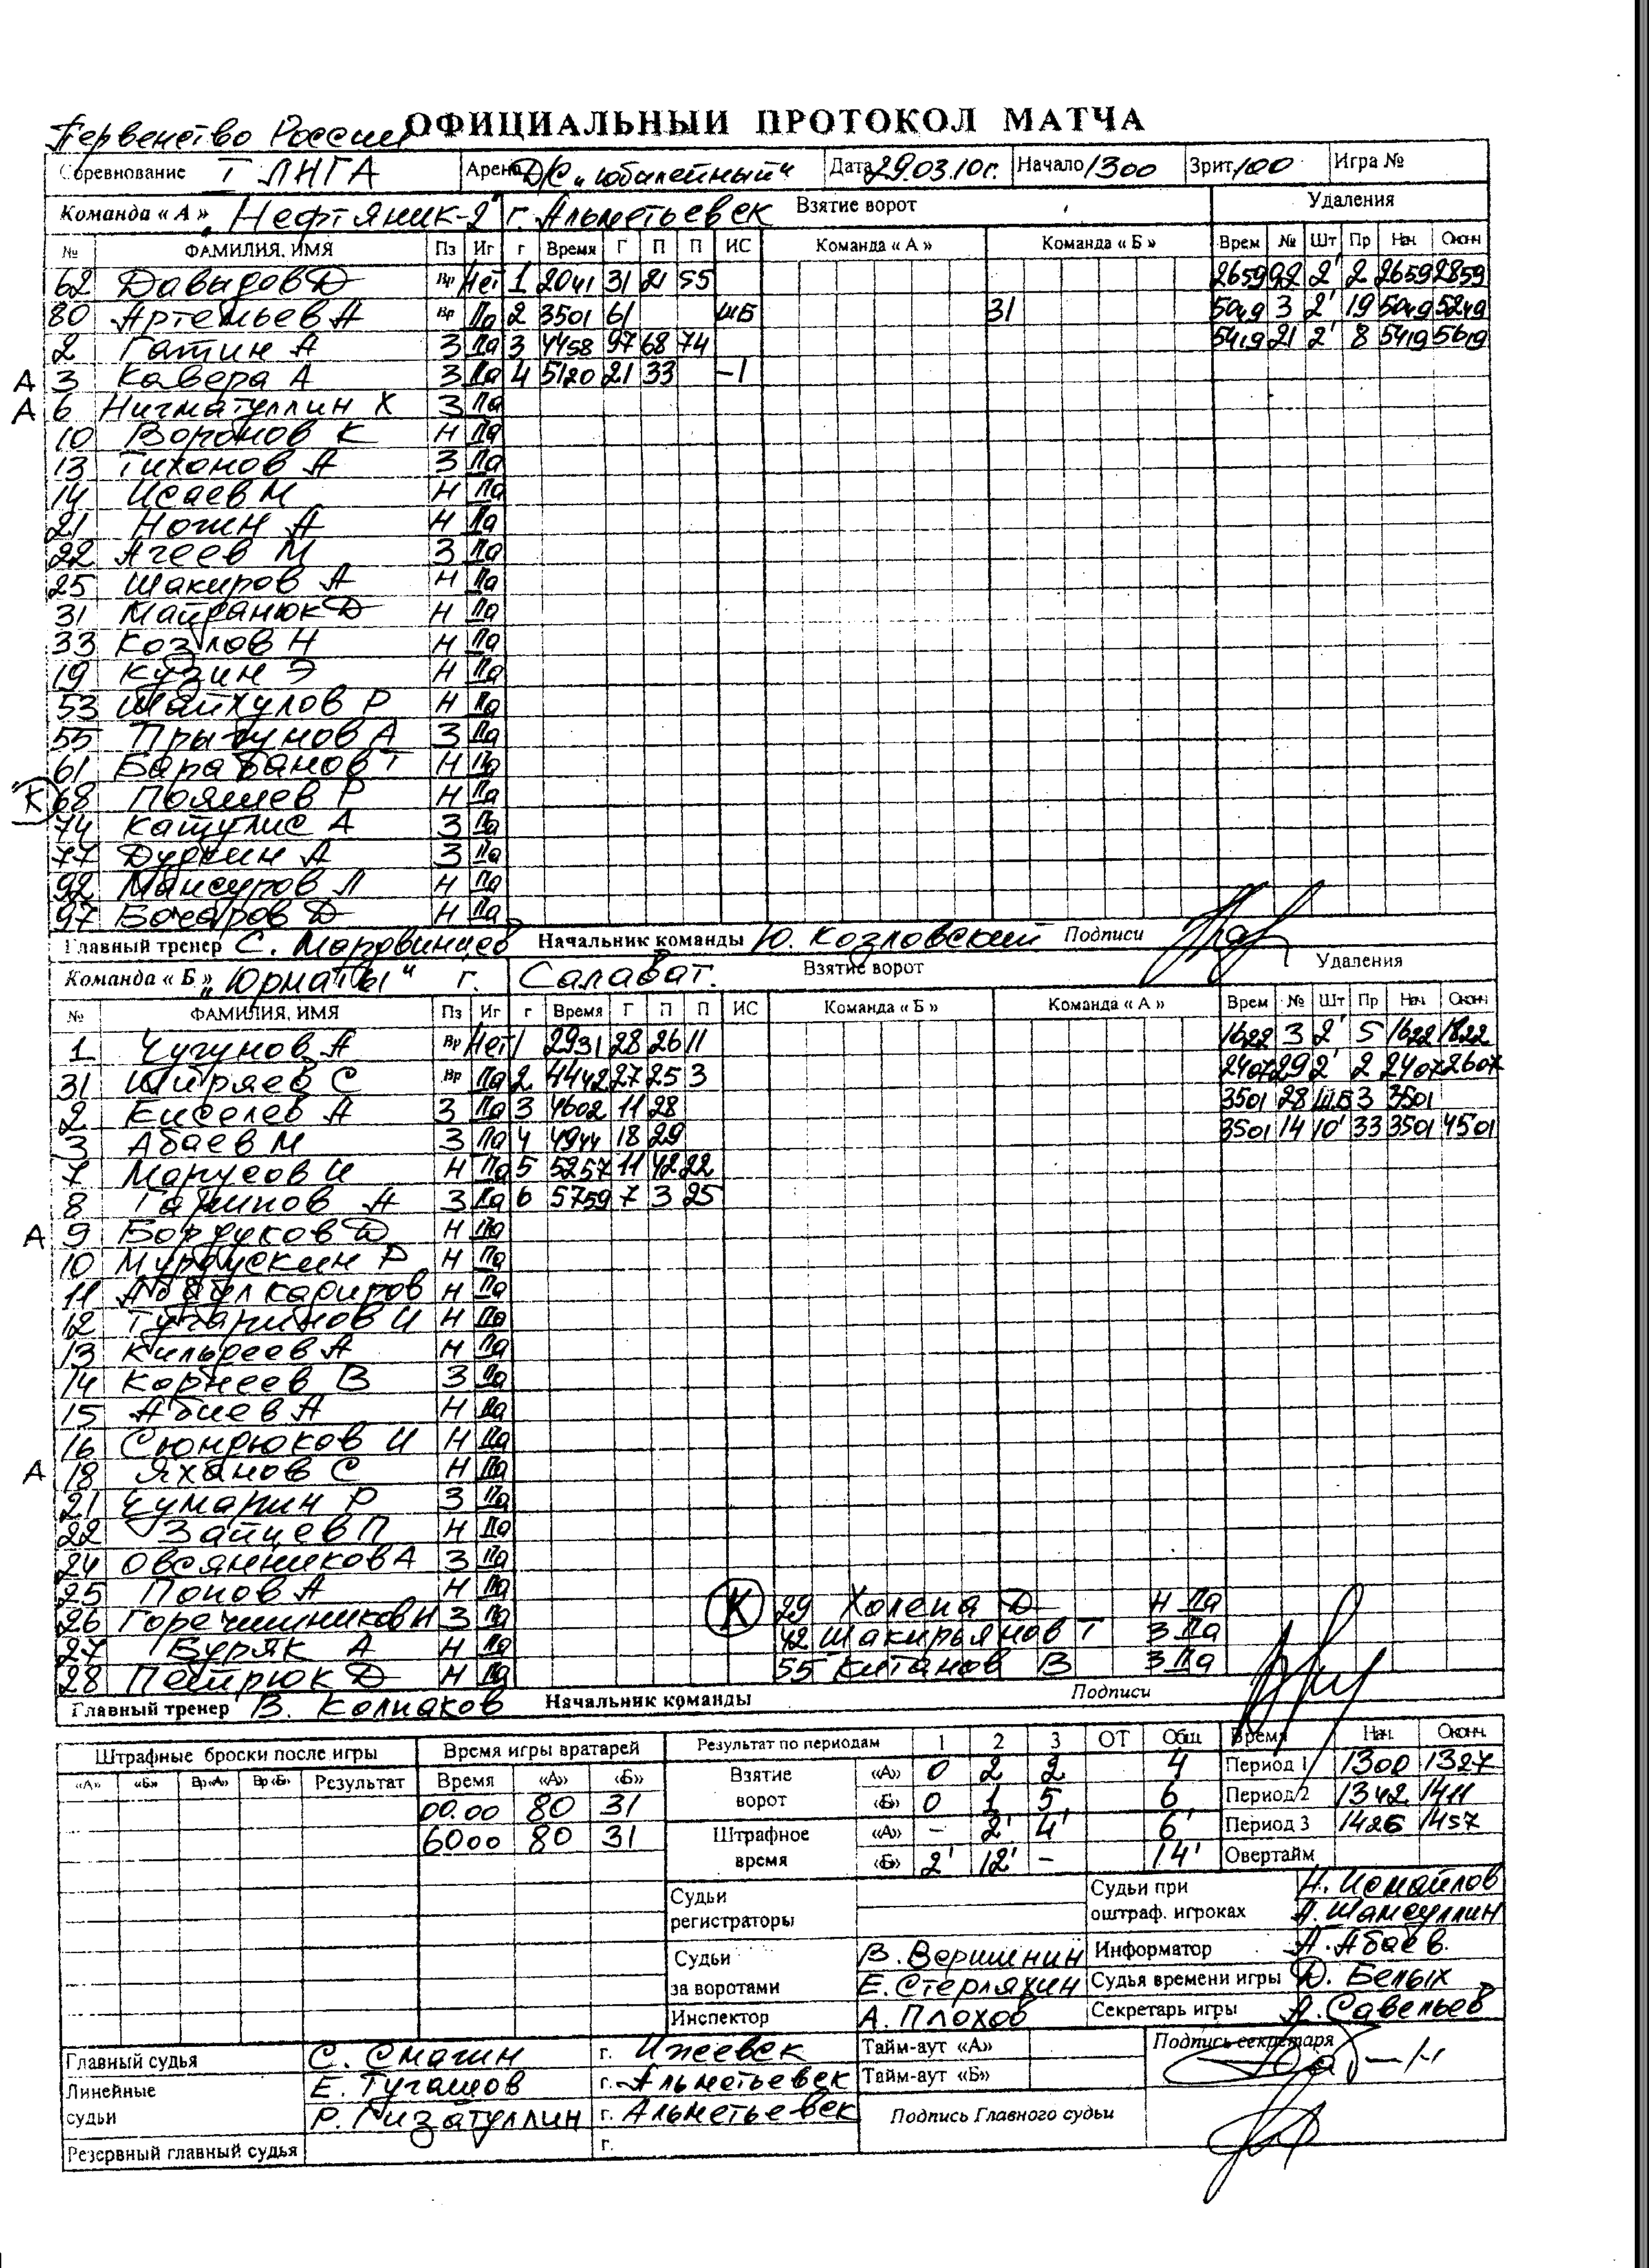 ОФИЦИАЛЬНЫЙ ПРОТОКОЛ МАТЧА
Первенство России
Соревнование I ЛИГА Арена Д/С „Юбилейный“ Дата 29.03.10г. Начало 1300 Зрит. 100 Игра №
Команда « А » „Нефтяник-2“ г. Альметьевск Взятие ворот Удаления
№ ФАМИЛИЯ, ИМЯ Пз Иг г Время Г П П ИС Команда « А » Команда « Б » Врем № Шт Пр Нач Оконч
62 Давыдов Д Вр Нет 1 2041 31 21 55 2659 92 2' 2 2659 2859
80 Артемьев А Вр Па 2 3501 61 ШБ 31 5049 3 2' 19 5049 5249
2 Гатин А З Па 3 4458 97 68 74 5419 21 2' 8 5419 5619
А 3 Кавера А З Па 4 5120 21 33 -1
А 6 Нигматуллин Х З Па
10 Воронов К Н Па
13 Тихонов А З Па
14 Исаев М Н Па
21 Ногин А Н Па
22 Агеев М З Па
25 Шакиров А Н Па
31 Майданюк Д Н Па
33 Козлов Н Н Па
19 Кузин Э Н Па
53 Шайхулов Р Н Па
55 Прыгунов А З Па
61 Барабанов Т Н Па
К 68 Пояшев Р Н Па
74 Катулис А З Па
77 Дудкин А З Па
92 Мансуров Л Н Па
97 Бочаров Д Н Па
Главный тренер С. Мордвинцев Начальник команды Ю. Козловский Подписи
Команда « Б » „Юрматы“ г. Салават. Взятие ворот Удаления
№ ФАМИЛИЯ, ИМЯ Пз Иг г Время Г П П ИС Команда « Б » Команда « А » Врем № Шт Пр Нач Оконч
1 Чугунов А Вр Нет 1 2931 28 26 11 1622 3 2' 5 1622 1822
31 Ширяев С Вр Па 2 4442 27 25 3 2407 29 2' 2 2407 2607
2 Киселев А З Па 3 4602 11 28 3501 28 Ш.Б 3 3501
3 Абаев М З Па 4 4944 18 29 3501 14 10' 33 3501 4501
7 Марусов И Н Па 5 5257 11 42 22
8 Гарипов А З Па 6 5759 7 3 25
А 9 Бордуков Д Н Па
10 Мурдускин Р Н Па
11 Абдулкариров Н Па
12 Тугаринов И Н Па
13 Кильреев А Н Па
14 Корнеев В З Па
15 Абиев А Н Па
16 Сюндюков И Н Па
А 18 Яханов С Н Па
21 Чумарин Р З Па
22 Зайцев П Н Па
24 Овсянников А З Па
25 Попов А Н Па К 29 Холена Д Н Па
26 Горечишников Н З Па 42 Шакирьянов Т З Па
27 Буряк А Н Па 55 Китанов В З Па
28 Петрюк Д Н Па
Главный тренер В. Колпаков Начальник команды Подписи
Штрафные броски после игры Время игры вратарей Результат по периодам 1 2 3 ОТ Общ Время Нач. Оконч.
«А» «Б» Вр«А» Вр«Б» Результат Время «А» «Б» Взятие ворот «А» 0 2 2 4 Период 1 1300 1327
00.00 80 31 «Б» 0 1 5 6 Период 2 1342 1411
6000 80 31 Штрафное время «А» - 2' 4' 6' Период 3 1426 1457
«Б» 2' 12' - 14' Овертайм
Судьи регистраторы Судьи при оштраф. игроках Н. Исмайлов
А. Шамсуллин
Судьи за воротами В. Вершинин Информатор А. Абаев.
Е. Стерляхин Судья времени игры Д. Белых
Инспектор А. Плохов Секретарь игры А. Савельев
Главный судья С. Смагин г. Ижевск Тайм-аут «А» Подпись секретаря
Линейные Е. Тугашов г. Альметьевск Тайм-аут «Б»
судьи Р. Гизатуллин г. Альметьевск Подпись Главного судьи
Резервный главный судья г.